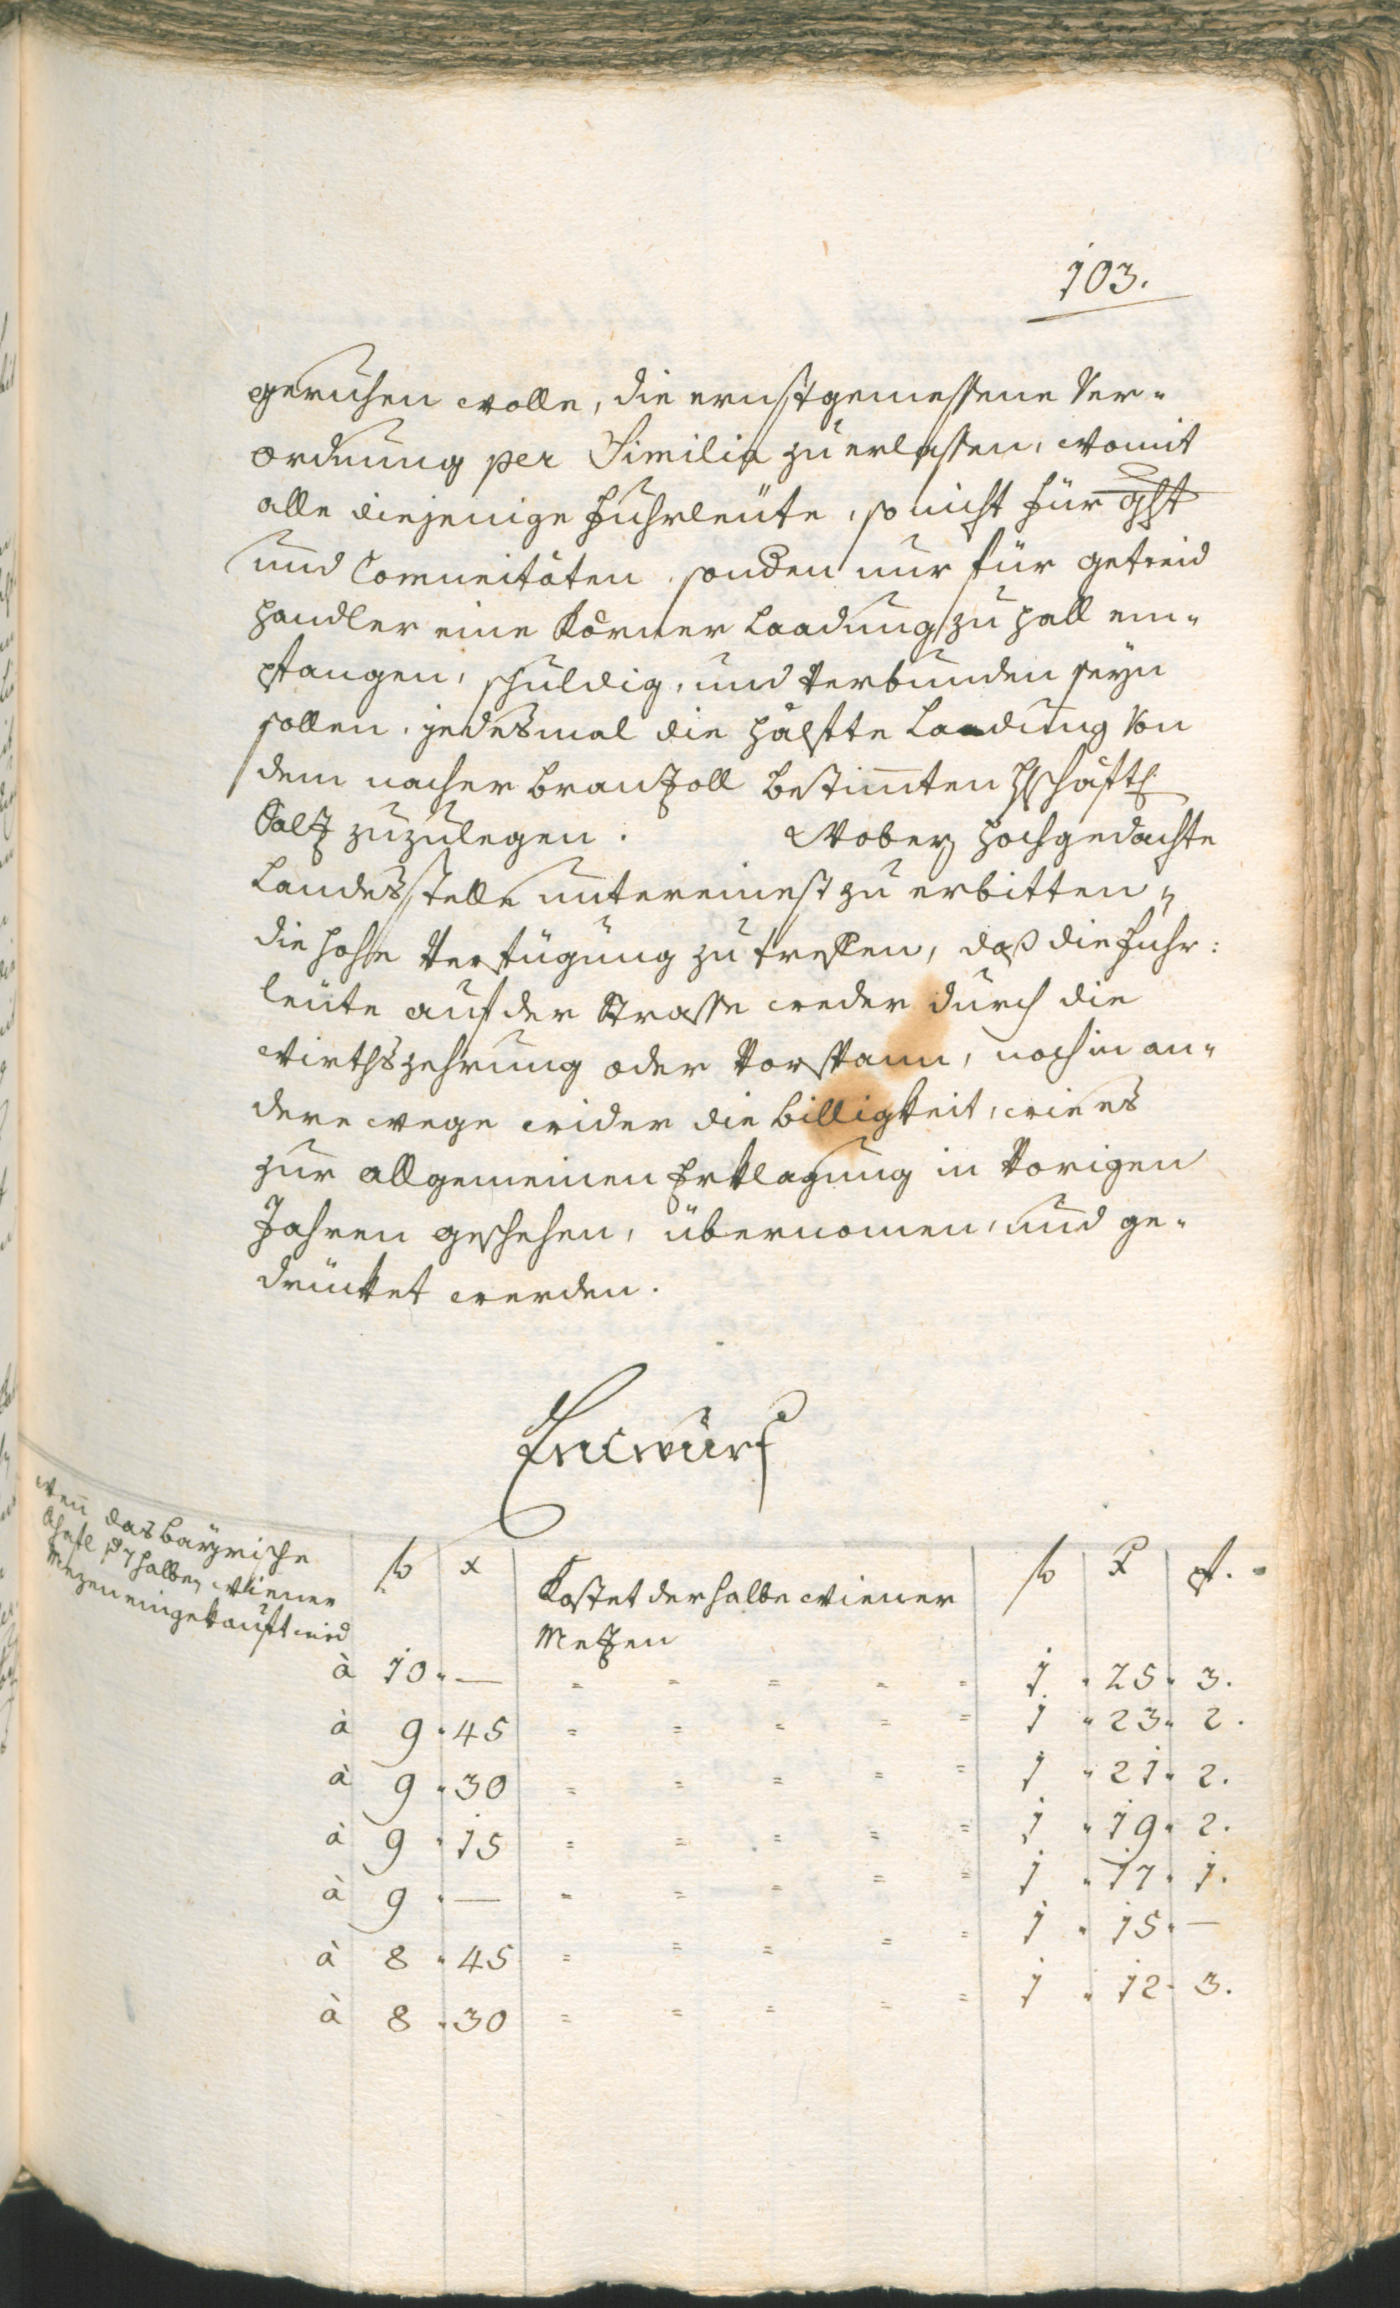 103.
geruhen wolle, die ernstgemessene Ver-
ordnung per Similia zu erlassen, womit
alle diejenige Fuhrleüte, so nicht für
und Comunitäten, sonden nur für getreid
handler eine Körner Laadung zu Hall em-
pfangen, schuldig, und verbunden seyn
sollen, jedesmal die hälfte Laadung von
dem nacher Branzoll bestim̅ten hschäftl
Salz zuzulegen. Wobey hochgedachte
Landesstelle untereinest zu erbitten,
die hohe Verfügung zu treffen, daß die Fuhr:
leüte auf der Strasse weder durch die
Wirthszehrung oder Vorspann, noch in an-
dere wege wider die billigkeit, wie es
zur allgemeinen Erklagung in vorigen
Jahren geschehen, übernomen, und ge-
drücket werden.
Entwurf
Wen̅ das bayrische
Schäfl pr 7 halbe, Wiener
Mezen eingekauft wird
fl x Kostet der halbe Wiener Metzen fl x pf.
à 10 " — = = = = = 1 " 25 " 3.
à 9 " 45 = = = = = 1 " 23 " 2.
à 9 " 30 = = = = = 1 " 21 " 2.
à 9 " 15 = = = = = 1 " 19 " 2.
à 9 " — = = = = = 1 " 17 " 1.
à 8 " 45 = = = = = 1 " 15 " —
à 8 " 30 = = = = = 1 " 12 " 3.